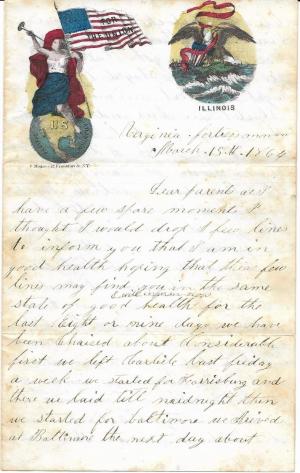 FOR
THE UNION
U S
ILLINOIS
Verginia fortress monro
March 15th 1864
Dear parents as I
have a few spare moments I
thought I would drop A few lines
to inform you that I am in
good health hoping that these few
lines may find you in the same
state of good health for the
last Eight or nine days we have
been Chaised about Considerable
first we left Carlile last friday
a week we started for Harrisburg and
there we laid till maidnight then
we started for baltimore we Arived
at Baltimore the next day about